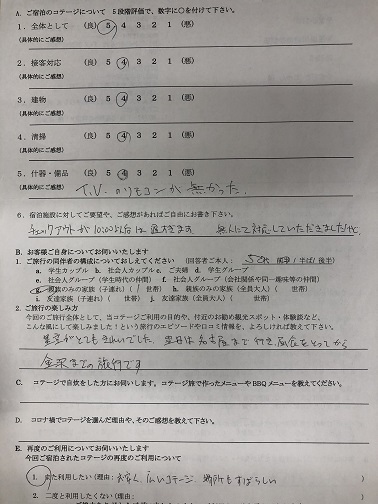 A. ご宿泊のコテージについて 5段階評価で、数字に○を付けて下さい。
1. 全体として (良) 5 4 3 2 1 (悪)
(具体的にご感想)
2. 接客対応 (良) 5 4 3 2 1 (悪)
(具体的にご感想)
3. 建物 (良) 5 4 3 2 1 (悪)
(具体的にご感想)
4. 清掃 (良) 5 4 3 2 1 (悪)
(具体的にご感想)
5. 什器・備品 (良) 5 4 3 2 1 (悪)
(具体的にご感想) T.V.のリモコンが無かった.
6. 宿泊施設に対してご要望や、ご感想があればご自由にお書き下さい。
チェックアウトが10:00以降は 対応していただきました
B. お客様ご自身についてお伺いいたします
1. ご旅行の同伴者の構成についておしえてください (回答者ご本人: 50代 前半/半ば/後半)
a. 学生カップル b. 社会人カップル c. ご夫婦 d. 学生グループ
e. 社会人グループ(学生時代の仲間) f. 社会人グループ(会社関係や同一趣味等の仲間)
g. 親族のみの家族(子連れ)( 世帯) h. 親族のみの家族(全員大人)( 世帯)
i. 友達家族(子連れ)( 世帯) j. 友達家族(全員大人)( 世帯)
2. ご旅行の楽しみ方
今回のご旅行全体として、当コテージご利用の目的や、付近のお勧め観光スポット・体験談など、
こんな風にして楽しみました!という旅行のエピソードや口コミ情報を、よろしければ教えて下さい。
星空がとてもきれいでした。翌日は名古屋まで行き 昼食をとってから
金沢までの旅行です
C. コテージで自炊をした方にお伺します。コテージ旅で作ったメニューやBBQメニューを教えてください。
D. コロナ禍でコテージを選んだ理由や、そのご感想を教えて下さい。
E. 再度のご利用についてお伺いいたします
今回ご宿泊されたコテージの再度のご利用について
1. また利用したい(理由: 広いコテージ 場所もすばらしい )
2. 二度と利用したくない(理由: )